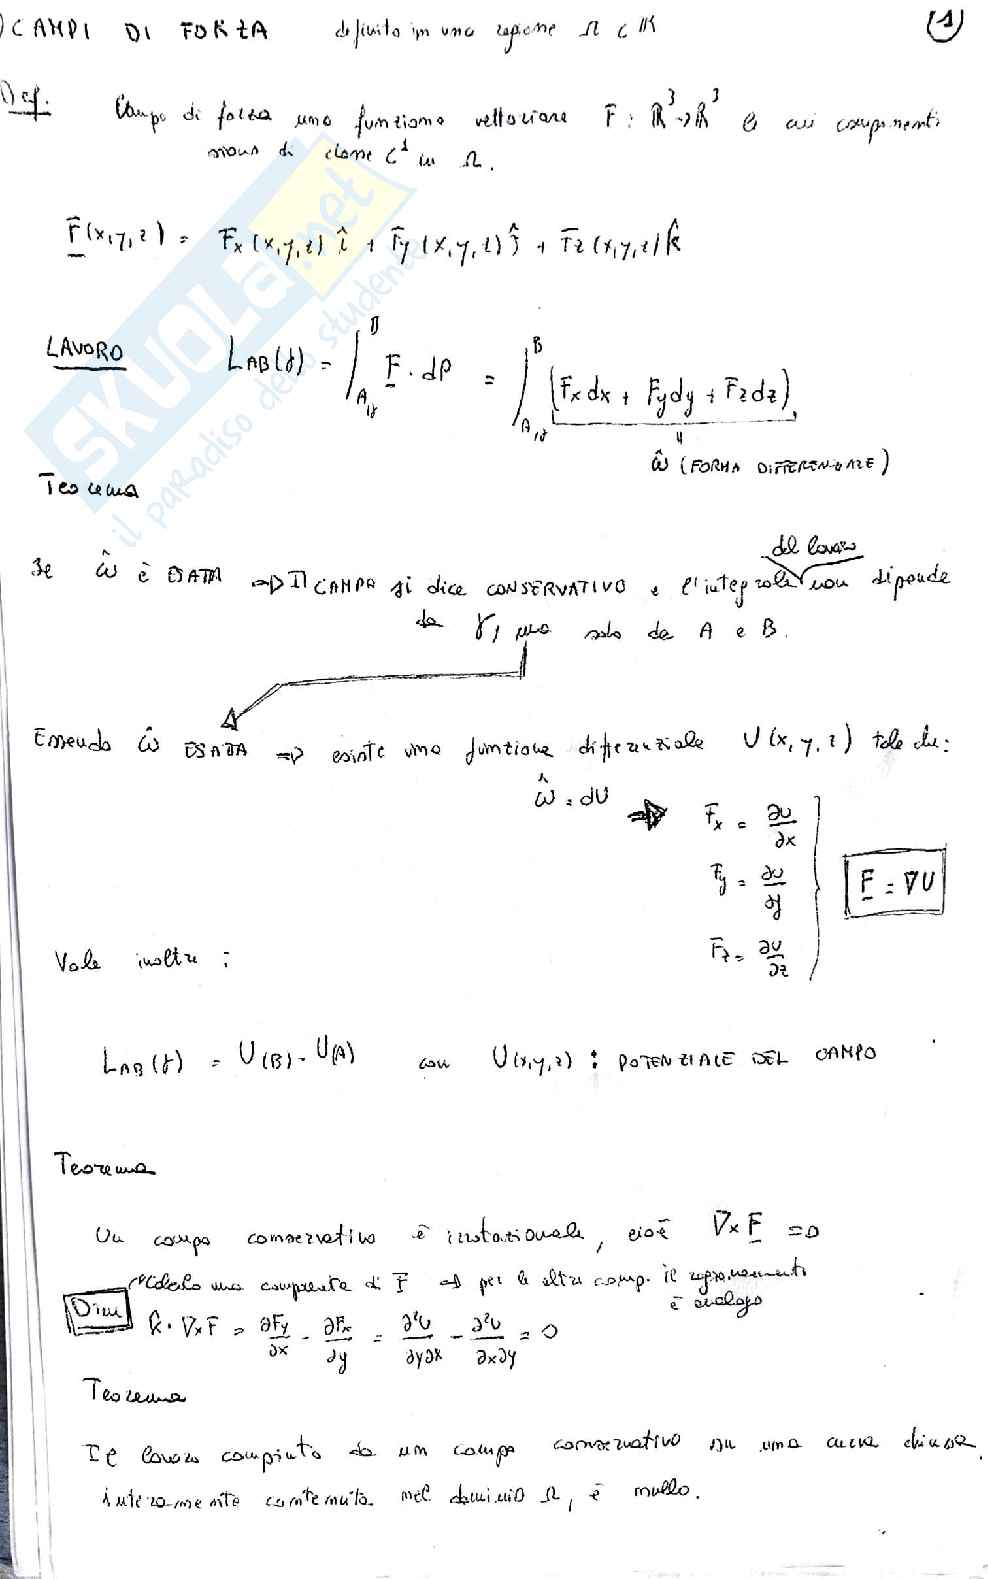 ) CAMPI DI FORZA definito in una regione Ω ⊂ ℝ (1)
Def. Campo di forza una funzione vettoriale F : ℝ³→ℝ³ le cui componenti
siano di classe C¹ in Ω.
F(x,y,z) = Fx(x,y,z) î + Fy(x,y,z) ĵ + Fz(x,y,z) k̂
LAVORO L_AB(γ) = ∫_{A,γ}^{B} F · dP = ∫_{A,γ}^{B} (Fx dx + Fy dy + Fz dz)
"
ω̂ (FORMA DIFFERENZIALE)
Teorema
del lavoro
Se ω̂ è ESATTA ⇒ Il CAMPO si dice CONSERVATIVO e l'integrale non dipende
da γ, ma solo da A e B.
Essendo ω̂ ESATTA ⇒ esiste una funzione differenziale U(x,y,z) tale che:
ω̂ = dU ⇒ Fx = ∂U/∂x
Fy = ∂U/∂y F = ∇U
Fz = ∂U/∂z
Vale inoltre :
L_AB(γ) = U(B) - U(A) con U(x,y,z) : POTENZIALE DEL CAMPO
Teorema
Un campo conservativo è irrotazionale, cioè ∇×F = 0
Calcolo una componente di F → per le altre comp. il ragionamento
è analogo
Dim k̂ · ∇×F = ∂Fy/∂x - ∂Fx/∂y = ∂²U/∂y∂x - ∂²U/∂x∂y = 0
Teorema
Il lavoro compiuto da un campo conservativo su una curva chiusa
interamente contenuta nel dominio Ω, è nullo.
SKUOLA.net
il paradiso dello studente